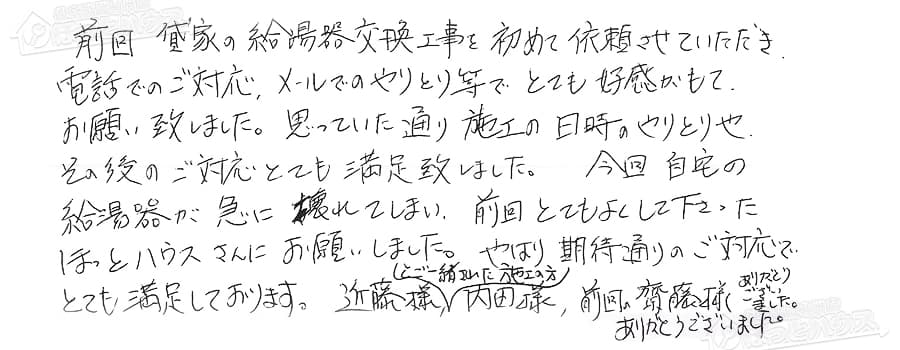 前回 貸家の給湯器交換工事を初めて依頼させていただき
電話でのご対応、メールでのやりとり等でとても好感がもて、
お願い致しました。思っていた通り施工の日時のやりとりや、
その後のご対応とても満足致しました。 今回自宅の
給湯器が急に壊れてしまい、前回とてもよくして下さった
ほっとハウスさんにお願いしました。やはり期待通りのご対応で
とても満足しております。近藤様、(とご一緒された施工の方)内田様、前回の齋藤様ありがとうございました。
ありがとうございました。